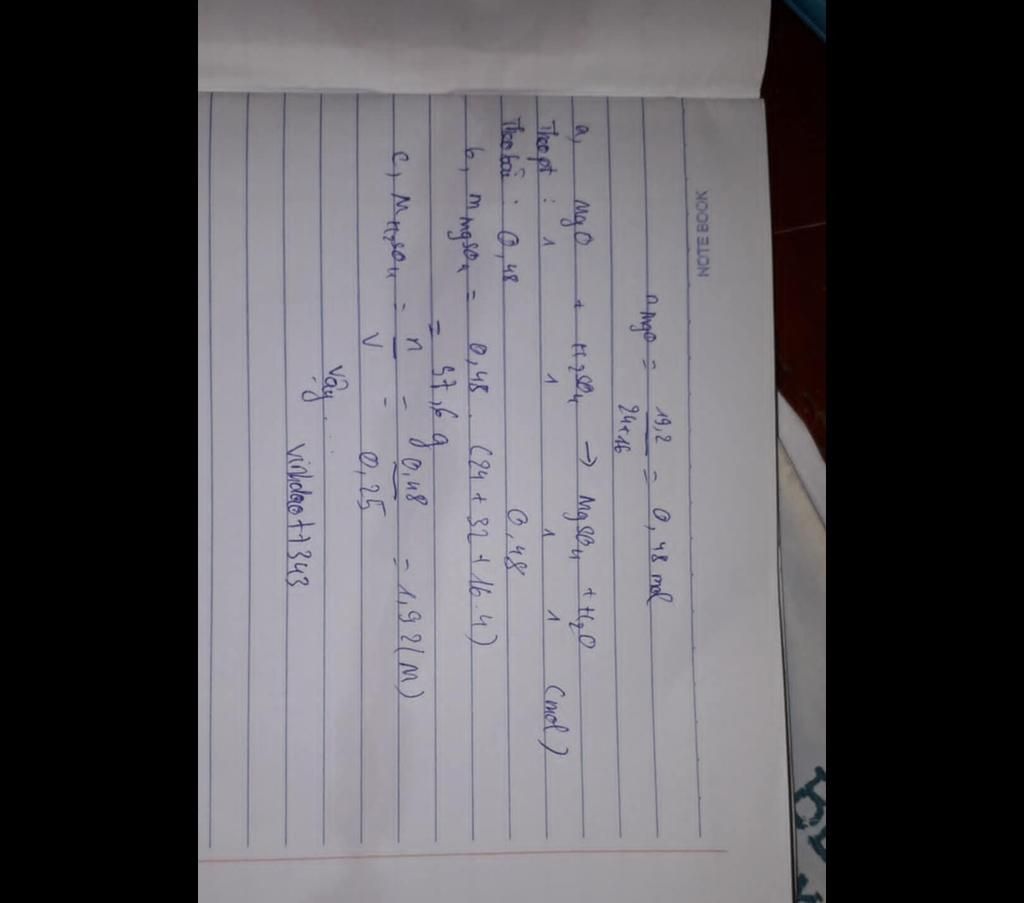 NOTE BOOK
nMgO = 19,2 / 24+16 = 0,48 mol
a, MgO + H2SO4 → MgSO4 + H2O
Theo pt : 1 1 1 1 (mol)
Theo bài : 0,48 0,48
b, mMgSO4 = 0,48 . (24 + 32 + 16.4)
= 57,6 g
c, MH2SO4 = n / V = 0,48 / 0,25 = 1,92 (M)
Vậy ...